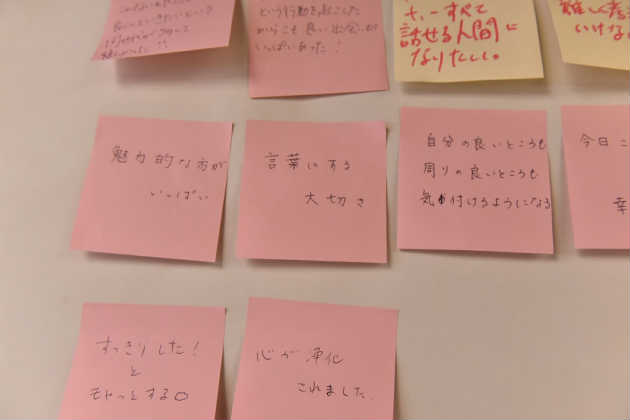 という行動を起こした
からこそ良い出会いが
いっぱいあった！
すべて
話せる人間に
なりたいし。
いけな
魅力的な方が
いっぱい
言葉にする
大切さ
自分の良いところも
周りの良いところも
気付けるようになる
今日こ
幸
すっきりした！
と
モヤっとする○
心が浄化
されました。